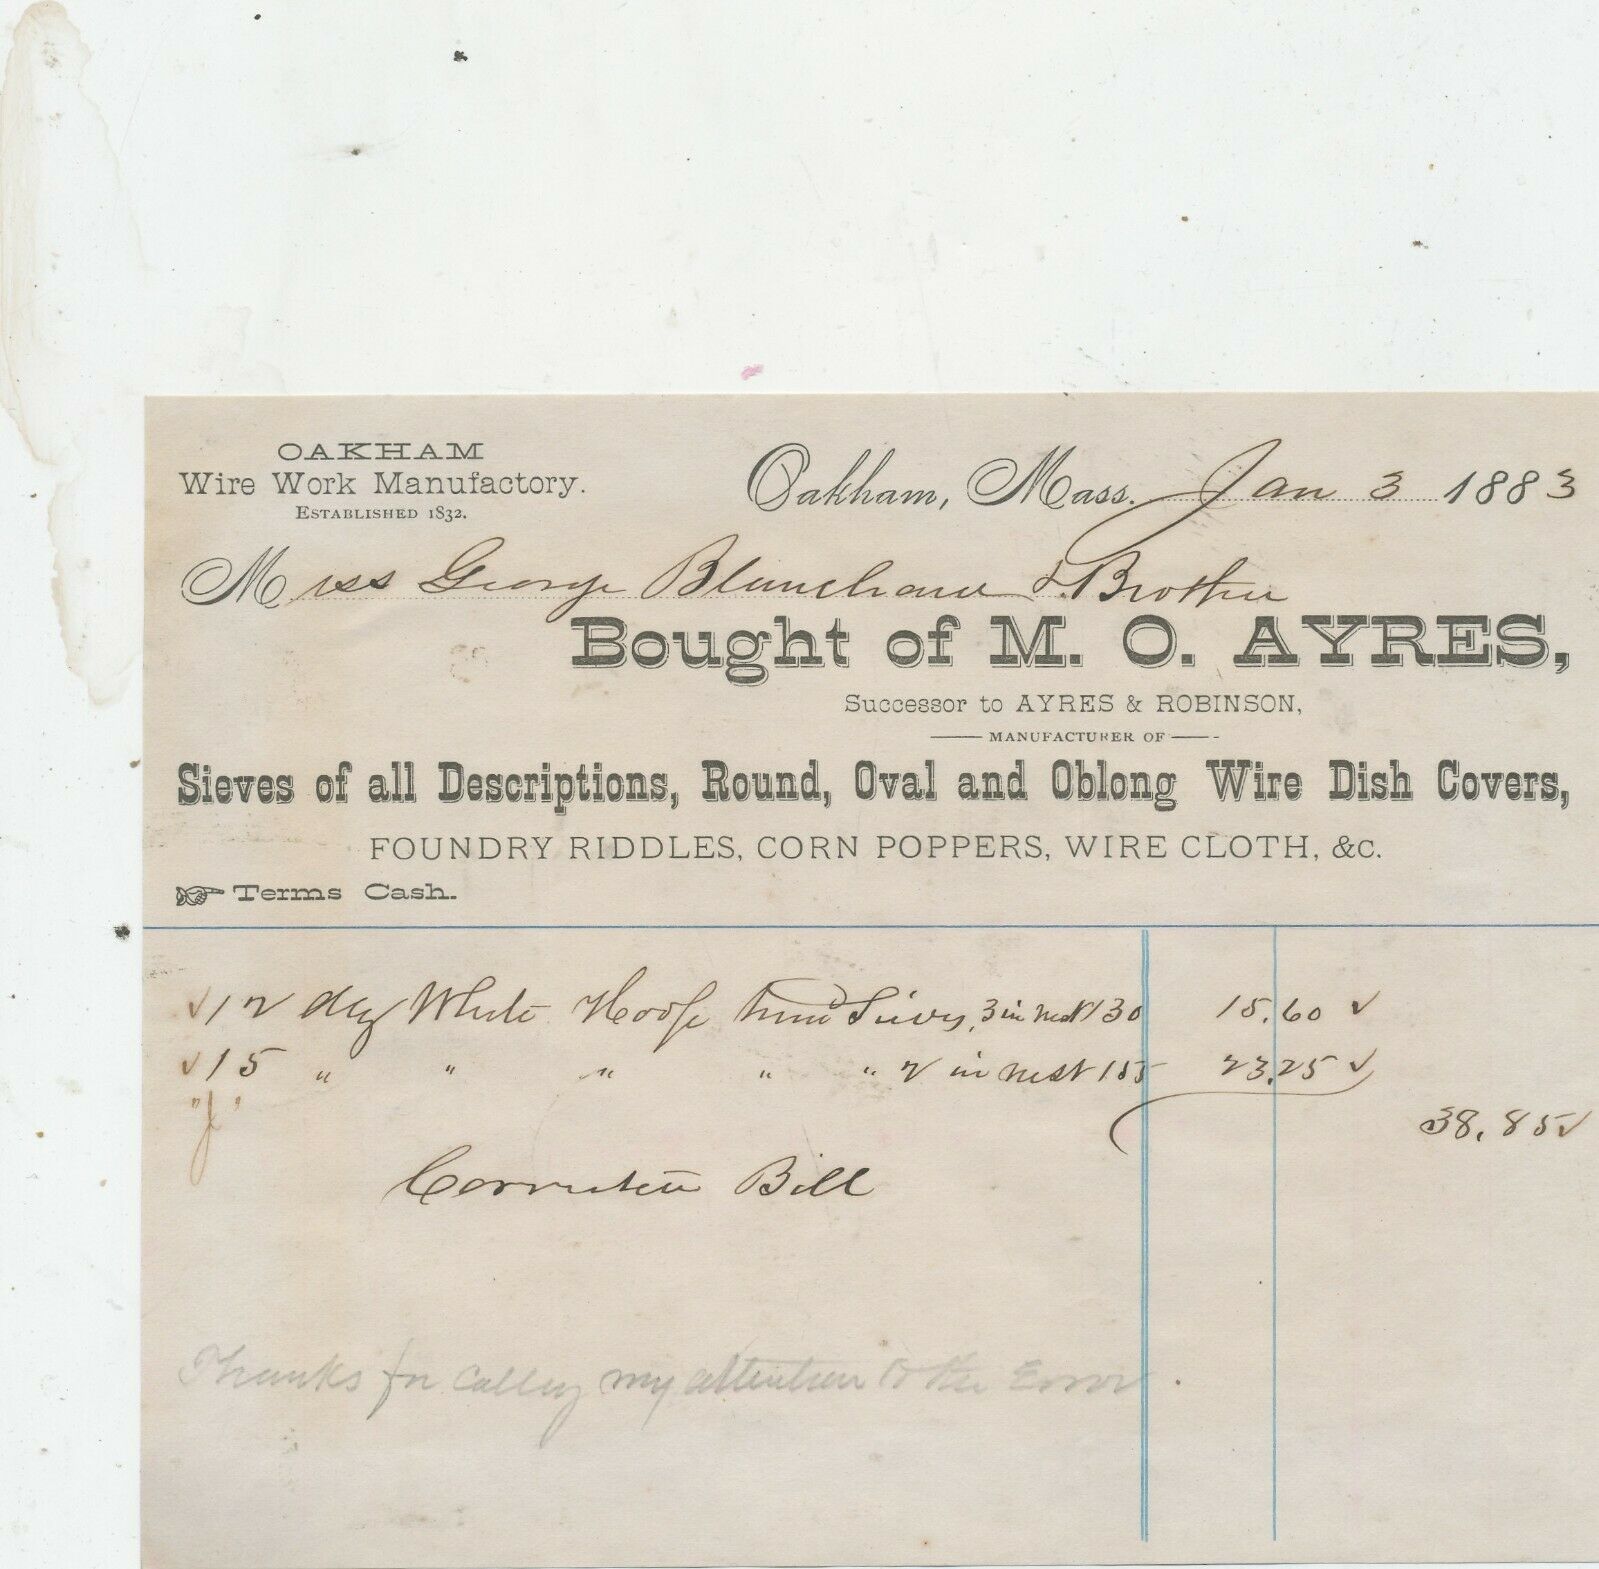 OAKHAM
Wire Work Manufactory.
ESTABLISHED 1832.
Oakham, Mass. Jan 3 1883
Mess George Blanchard & Brother
Bought of M. O. AYRES,
Successor to AYRES & ROBINSON,
MANUFACTURER OF
Sieves of all Descriptions, Round, Oval and Oblong Wire Dish Covers,
FOUNDRY RIDDLES, CORN POPPERS, WIRE CLOTH, &c.
Terms Cash.
✓ 12 doz White Hoop Sieves, 3 in nest 130 15.60 ✓
✓ 15 " " " " " 2 in nest 155 23.25 ✓
38.85 ✓
Bill
Thanks for calling my attention to the Error.